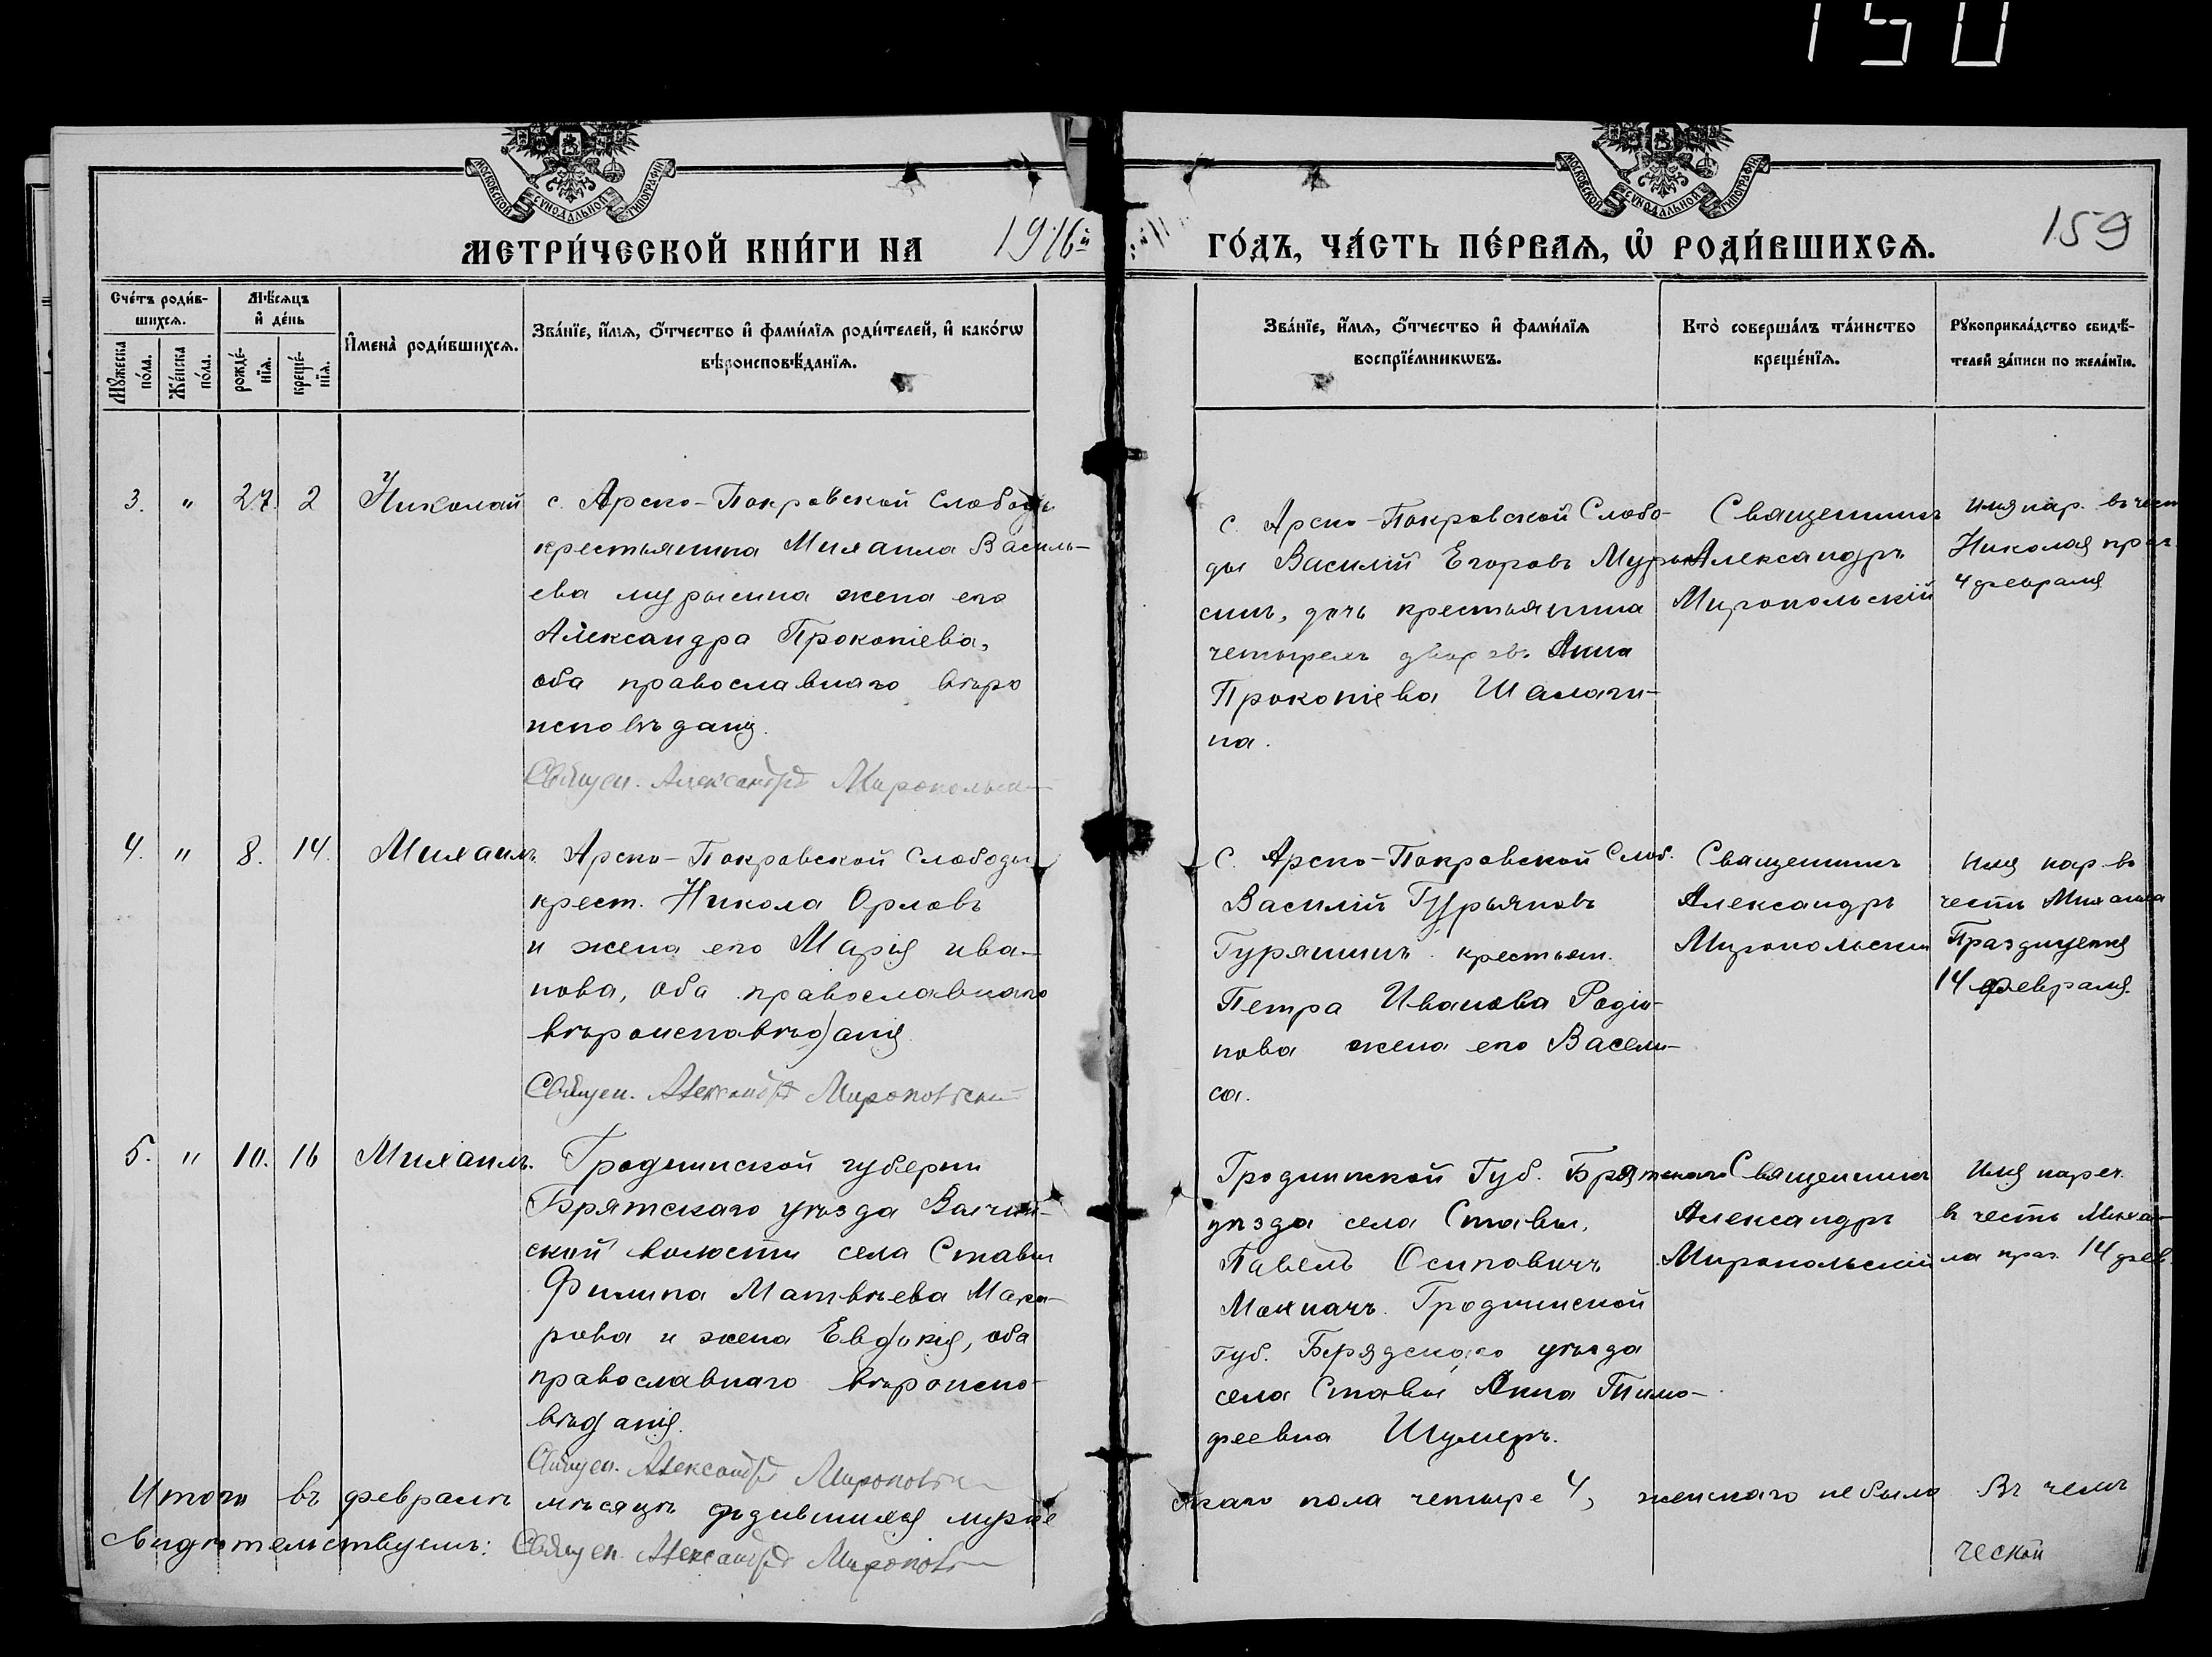 150
МОСКОВСКОЙ СУНОДАЛЬНОЙ ТИПОГРАФІИ
МОСКОВСКОЙ СУНОДАЛЬНОЙ ТИПОГРАФІИ
159
МЕТРИ́ЧЕСКОЙ КНИ́ГИ НА 1916й
ГО́ДЪ, ЧА́СТЬ ПЕ́РВАѦ, Ѡ҆ РОДИ́ВШИХСѦ.
Сче́тъ роди́в-
шихсѧ.
Мꙋ́жеска по́ла.
Же́нска по́ла.
Мѣ́сѧцъ
и҆ де́нь
рожде́-
нїѧ.
креще́-
нїѧ.
И҆мена̀ роди́вшихсѧ.
Зва́нїе, и҆́мѧ, ѻ҆́тчество и҆ фами́лїѧ роди́телей, и҆ како́гѡ
вѣроисповѣ́данїѧ.
Зва́нїе, и҆́мѧ, ѻ҆́тчество и҆ фами́лїѧ
воспрїе́мникѡвъ.
Кто̀ соверша́лъ та́инство
креще́нїѧ.
Рꙋкоприкла́дство свидѣ́-
телей за́писи по жела́нїю.
3. " 27. 2 Николай
с. Арско-Покровской Слободы
крестьянина Михаила Василь-
ева Мурысина жена его
Александра Прокопіева,
оба православнаго вѣро
исповѣданія.
Священ. Александръ Миропольск
с. Арско-Покровской Слобо-
ды Василій Егоровъ Муры-
синъ, дочь крестьянина
четырехъ дворовъ Анна
Прокопіева Шалаги-
на.
Священникъ
Александръ
Миропольскій
Имя нар. въ чест
Николая праз.
4 февраля
4. " 8. 14. Михаилъ
Арско-Покровской Слободы
крест. Никола Орловъ
и жена его Марія ива-
нова, оба православнаго
вѣроисповѣданія.
Священ. Александръ Миропольскій
С. Арско-Покровской Слоб.
Василій Гурьяновъ
Гурянинъ. крестьян.
Петра Иванова Родіо-
нова жена его Васели-
са.
Священникъ
Александръ
Миропольскій
Имя нар. въ
честь Михаила
Празднуемаго
14 февраля.
5. " 10. 16 Михаилъ.
Гродненской губерни
Брятскаго уѣзда
ской волости села Ставы
Филипа Матвѣева Мака-
рова и жена Евдокія, оба
православнаго вѣроиспо-
вѣданія.
Священ. Александръ Миропольск
Гродненской Губ. Брятскаго
уѣзда села Ставы,
Павелъ Осиповичъ
Гродненской
губ. Берядскаго уѣзда
села Ставы Анна Тимо-
феевна Шумеръ.
Священникъ
Александръ
Миропольскій
Имя нареч.
въ честь Михаи-
ла праз. 14 фев.
Итого въ февралѣ мѣсяцѣ родившихся муже
скаго пола четыре 4, женскаго небыло Въ чемъ
свидѣтельствуемъ: Священ. Александръ Миропол
ческой